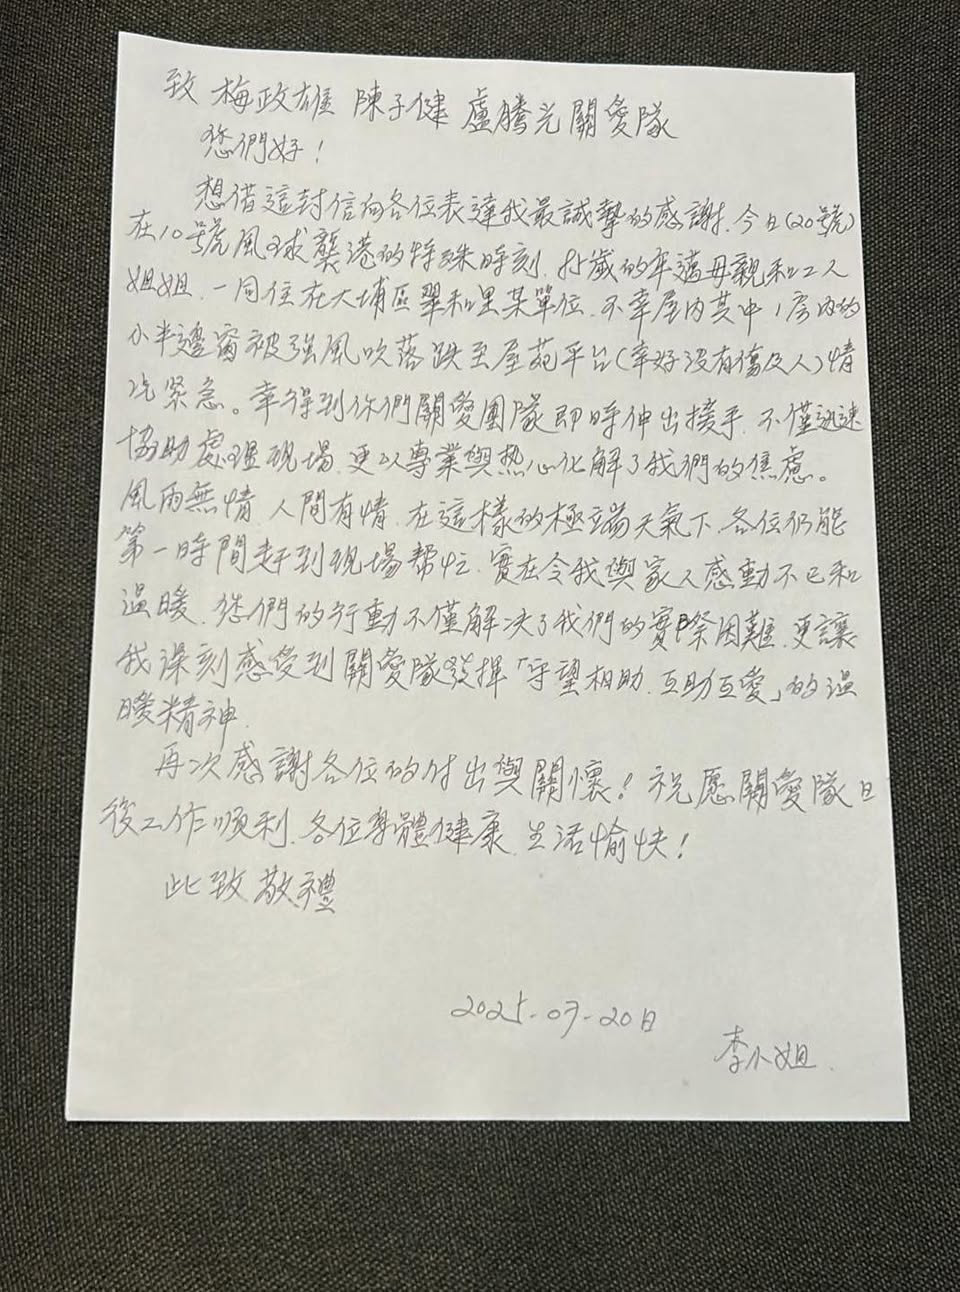 致 梅政雄 陳子健 盧騰光關愛隊
您們好！
想借這封信向各位表達我最誠摯的感謝.今日(20號)
在10號風球襲港的特殊時刻.85歲的年邁母親和工人
姐姐.一同住在大埔區翠和里某單位.不幸屋內其中1房內的
小半邊窗被強風吹落跌至屋苑平台(幸好沒有傷及人)情
況緊急。幸得到你們關愛團隊即時伸出援手.不僅迅速
協助處理現場.更以專業與热心化解了我們的焦慮。
風雨無情 人間有情.在這樣的極端天氣下.各位仍能
第一時間赶到現場幫忙.實在令我與家人感動不已和
溫暖.您們的行動不僅解决了我們的實際困難.更讓
我深刻感受到關愛隊發揮「守望相助.互助互愛」的溫
暖精神.
再次感謝各位的付出與關懷！祝愿關愛隊日
後工作順利.各位身體健康.生活愉快！
此致敬禮
2025-07-20日
李小姐.